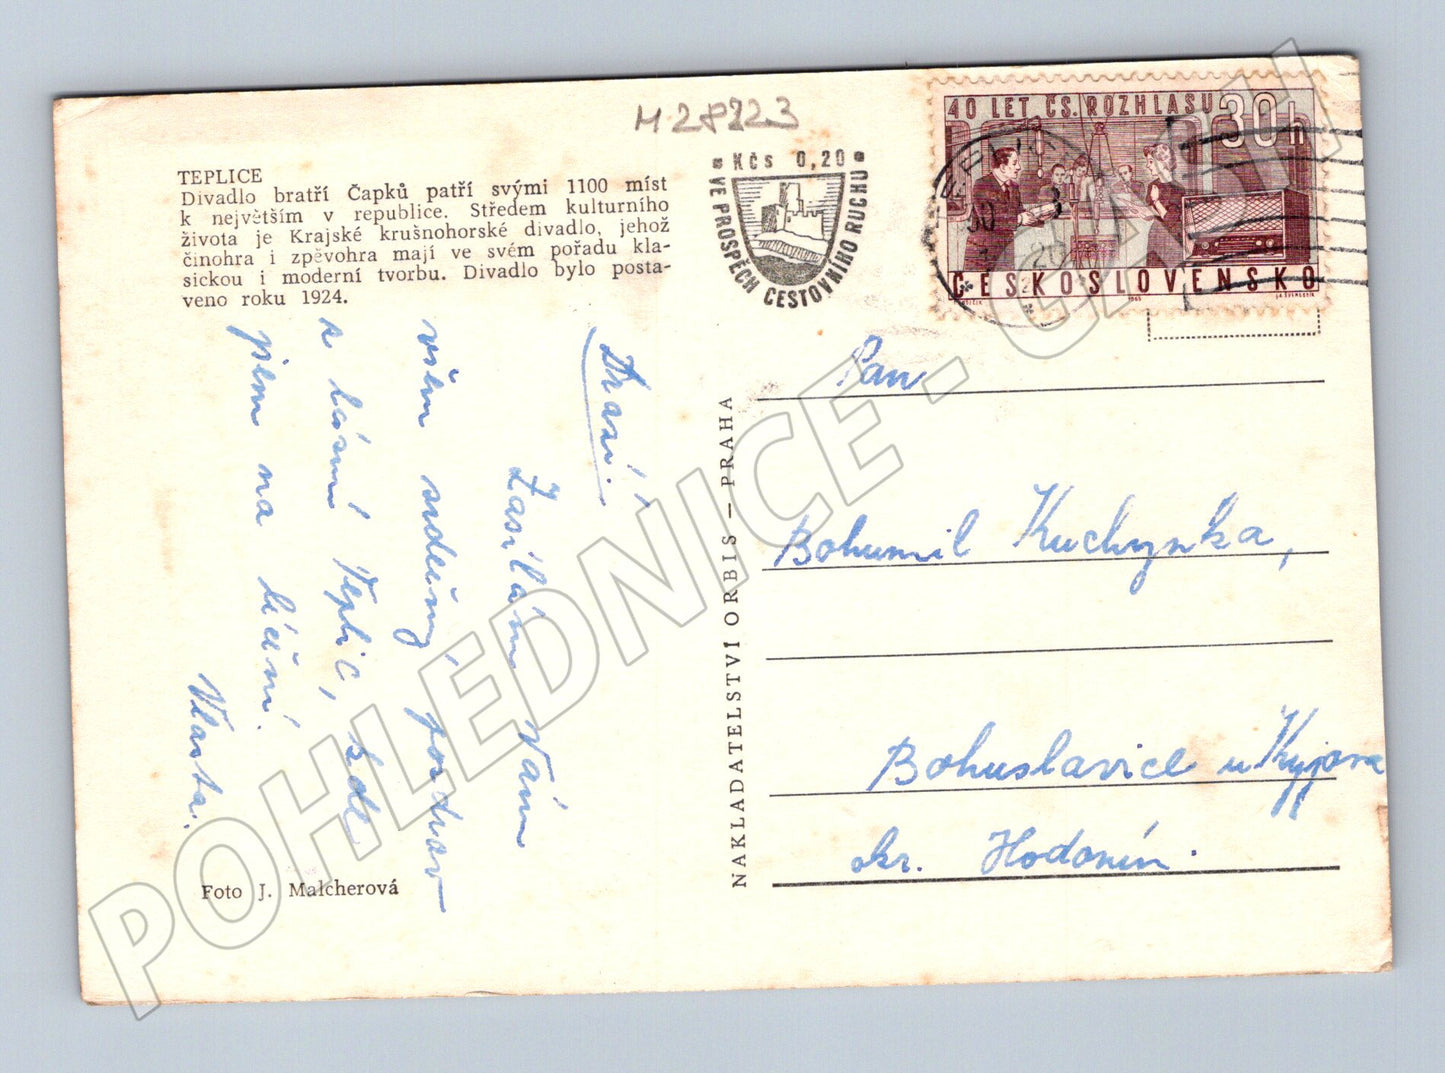 M 28223
TEPLICE
Divadlo bratří Čapků patří svými 1100 míst
k největším v republice. Středem kulturního
života je Krajské krušnohorské divadlo, jehož
činohra i zpěvohra mají ve svém pořadu kla-
sickou i moderní tvorbu. Divadlo bylo posta-
veno roku 1924.
Kčs 0,20
VE PROSPĚCH CESTOVNÍHO RUCHU
40 LET ČS. ROZHLASU
30h
ČESKOSLOVENSKO
1963
J.A. ŠVENGSBÍR
Drazí!
Zasílám Vám
všem srdečný pozdrav
z lázní Teplic, kde
jsem na léčení.
Vlasta.
Foto J. Malcherová
NAKLADATELSTVÍ ORBIS — PRAHA
Pan
Bohumil Kuchynka,
Bohuslavice u Kyjova
okr. Hodonín.
POHLEDNICE - CZECH